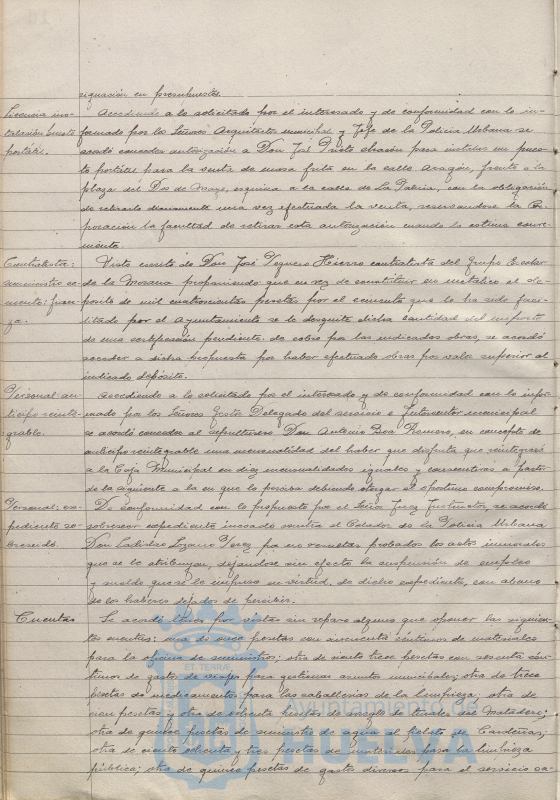 signación en presupuestos.
Licencia ins-
talación puesto
portátil.
Accediendo a lo solicitado por el interesado y de conformidad con lo in-
formado por los Señores Arquitecto municipal y Jefe de la Policía Urbana se
acordó conceder autorización a Don José Prieto para instalar un pues-
to portátil para la venta de fruta en la calle Aragón, frente a la
plaza del Dos de Mayo, esquina a la calle de La Palma, con la obligación
de retirarlo diariamente una vez efectuada la venta, reservándose la Cor-
poración la facultad de retirar esta autorización cuando lo estime conve-
niente.
Contratista:
suministro ce-
mento: fian-
za.
Visto escrito de Don José Hierro contratista del Grupo Escolar
de la proponiendo que en vez de constituir en metálico el de-
pósito de mil cuatrocientas pesetas por el cemento que le ha sido faci-
litado por el Ayuntamiento se le desquite dicha cantidad del importe
de una certificación pendiente de cobro por las indicadas obras, se acordó
acceder a dicha propuesta por haber efectuado obras por valor superior al
indicado depósito.
Personal: an-
ticipo reinte-
grable.
Accediendo a lo solicitado por el interesado y de conformidad con lo infor-
mado por los Señores Gestor Delegado del servicio e Interventor municipal
se acordó conceder al sepulturero Don Antonio Romero, en concepto de
anticipo reintegrable una mensualidad del haber que disfruta que reintegrará
a la Caja Municipal en diez mensualidades iguales y consecutivas a partir
de la siguiente a la en que lo perciba debiendo otorgar el oportuno compromiso.
Personal: ex-
pediente so-
breseido.
De conformidad con lo propuesto por el Señor Juez Instructor, se acordó
sobreseer expediente incoado contra el Celador de la Policía Urbana
Don Ladislao Lozano Pérez por no resultar probados los actos inmorales
que se le atribuyen, dejándose sin efecto la suspensión de empleo
y sueldo que se le impuso en virtud de dicho expediente, con abono
de los haberes dejados de percibir.
Cuentas
Se acordó por vistas sin reparo alguno que oponer las siguien-
tes cuentas: una de once pesetas con cincuenta céntimos de materiales
para la oficina de suministros; otra de ciento trece pesetas con sesenta cén-
timos de gastos de viajes para gestionar asuntos municipales; otra de trece
pesetas de medicamentos para las caballerías de la limpieza; otra de
cien pesetas y otra de ochenta pesetas de arreglo de del Matadero;
otra de quince pesetas de suministro de agua al fielato de Cardeñas;
otra de ciento ochenta y tres pesetas de materiales para la limpieza
pública; otra de quince pesetas de gastos diversos para el servicio sa-
ET TERRÆ
Ayuntamiento de
HUELVA